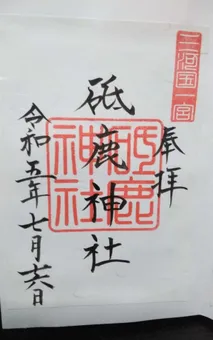 三河国一宮
奉拝
砥鹿神社
砥鹿神社
令和五年七月六日